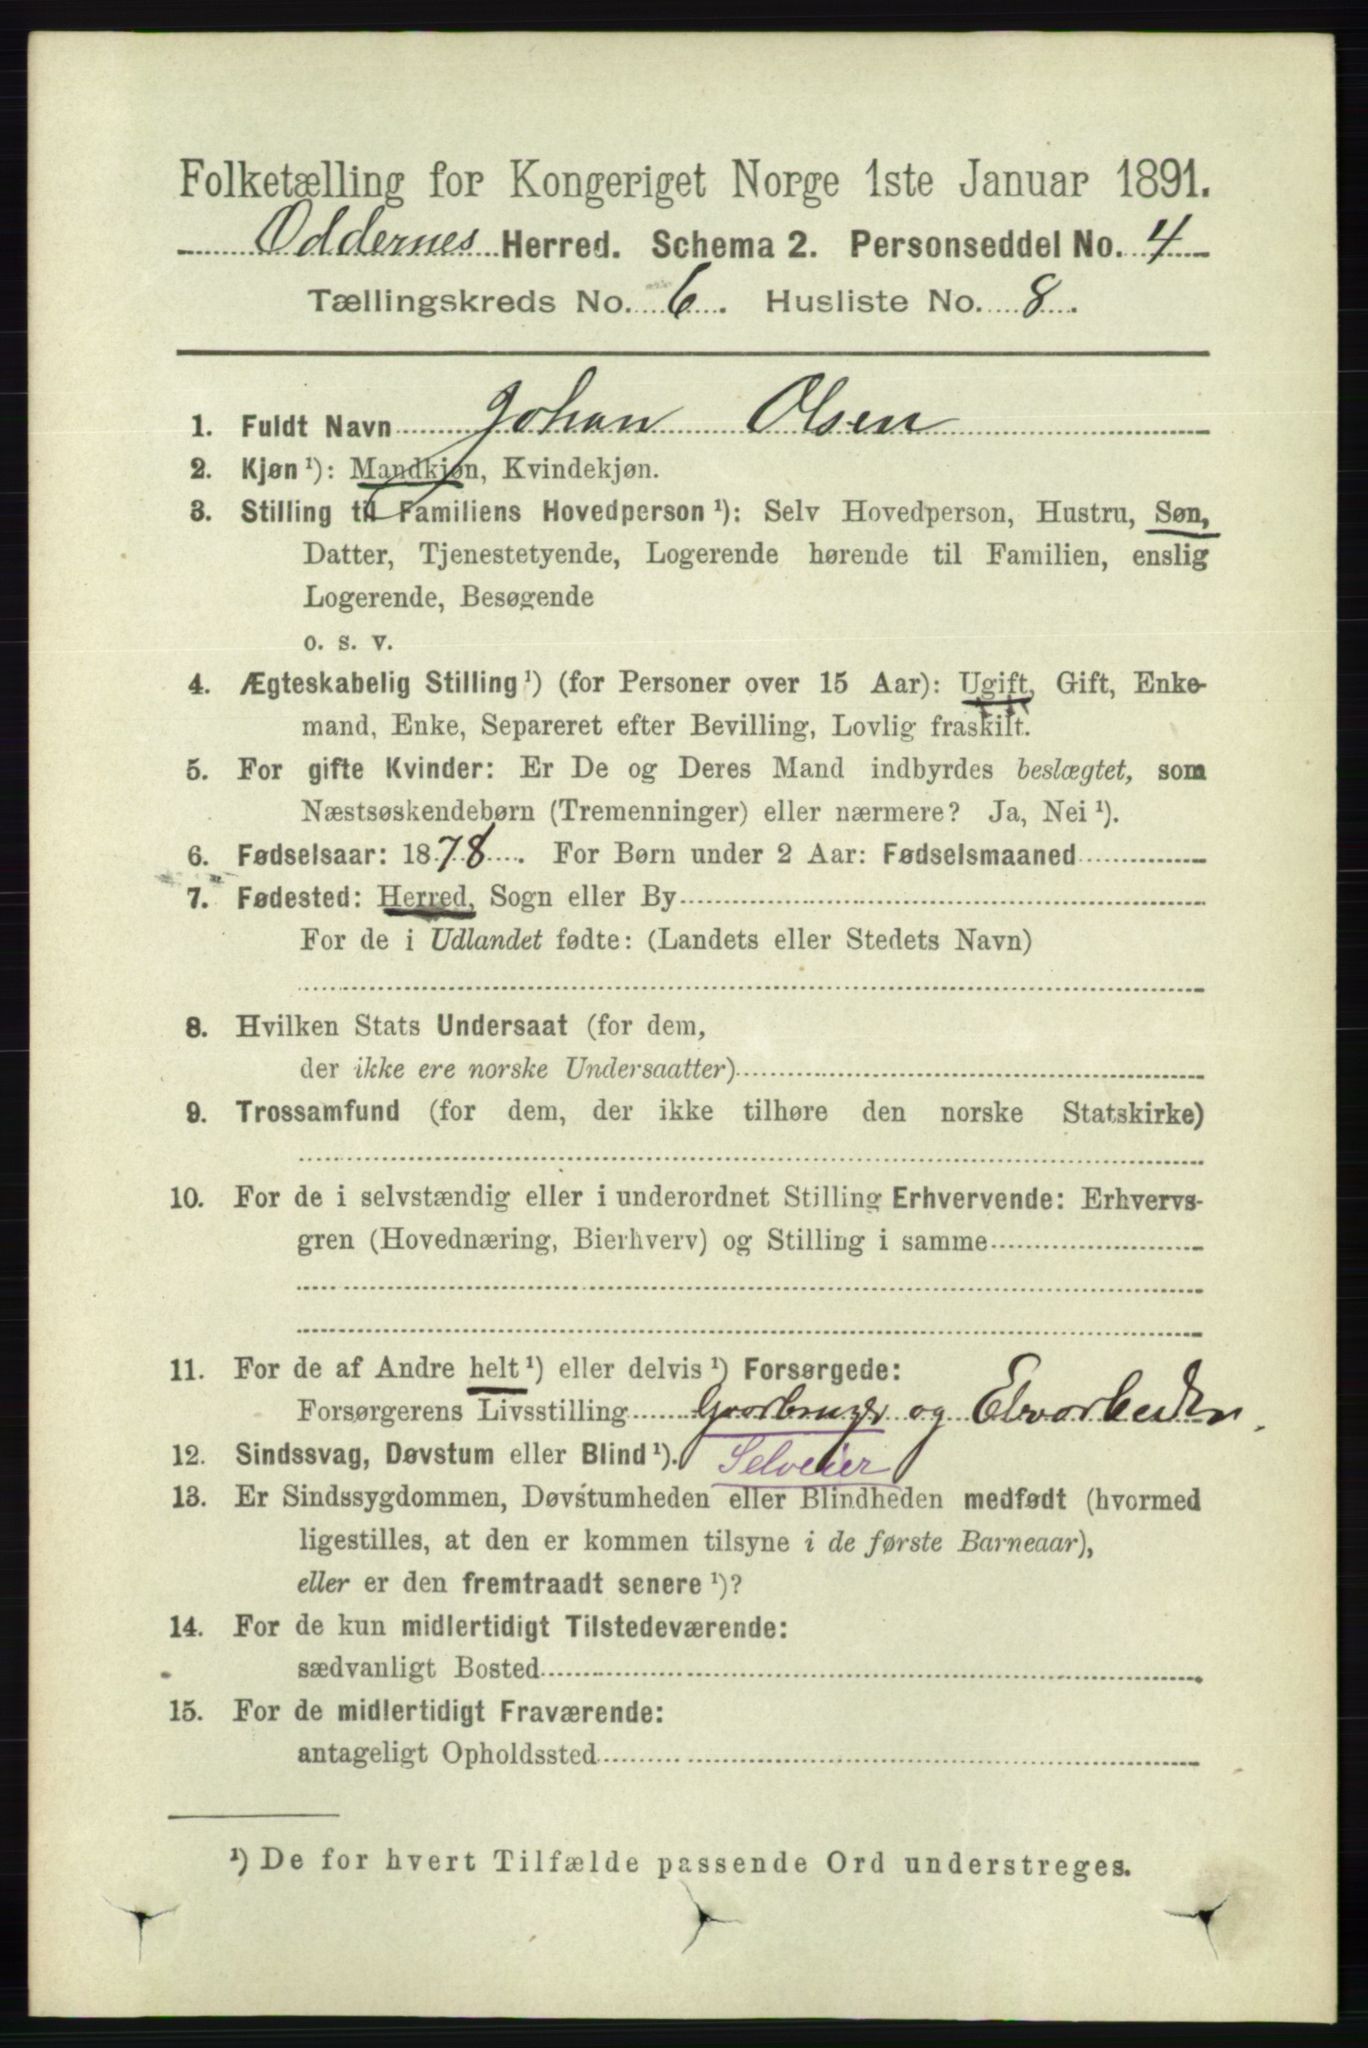 Folketælling for Kongeriget Norge 1ste Januar 1891.
Oddernes Herred. Schema 2. Personseddel No. 4
Tællingskreds No. 6. Husliste No. 8.
1. Fuldt Navn Johan Olsen
2. Kjøn ¹): Mandkjøn, Kvindekjøn.
3. Stilling til Familiens Hovedperson ¹): Selv Hovedperson, Hustru, Søn,
Datter, Tjenestetyende, Logerende hørende til Familien, enslig
Logerende, Besøgende
o. s. v.
4. Ægteskabelig Stilling ¹) (for Personer over 15 Aar): Ugift, Gift, Enke-
mand, Enke, Separeret efter Bevilling, Lovlig fraskilt.
5. For gifte Kvinder: Er De og Deres Mand indbyrdes beslægtet, som
Næstsøskendebørn (Tremenninger) eller nærmere? Ja, Nei ¹).
6. Fødselsaar: 1878. For Børn under 2 Aar: Fødselsmaaned
7. Fødested: Herred, Sogn eller By
For de i Udlandet fødte: (Landets eller Stedets Navn)
8. Hvilken Stats Undersaat (for dem,
der ikke ere norske Undersaatter)
9. Trossamfund (for dem, der ikke tilhøre den norske Statskirke)
10. For de i selvstændig eller i underordnet Stilling Erhvervende: Erhvervs-
gren (Hovednæring, Bierhverv) og Stilling i samme
11. For de af Andre helt ¹) eller delvis ¹) Forsørgede:
Forsørgerens Livsstilling Gaardbruger og Elvarbeider.
12. Sindssvag, Døvstum eller Blind ¹). Selveier
13. Er Sindssygdommen, Døvstumheden eller Blindheden medfødt (hvormed
ligestilles, at den er kommen tilsyne i de første Barneaar),
eller er den fremtraadt senere ¹)?
14. For de kun midlertidigt Tilstedeværende:
sædvanligt Bosted
15. For de midlertidigt Fraværende:
antageligt Opholdssted
¹) De for hvert Tilfælde passende Ord understreges.